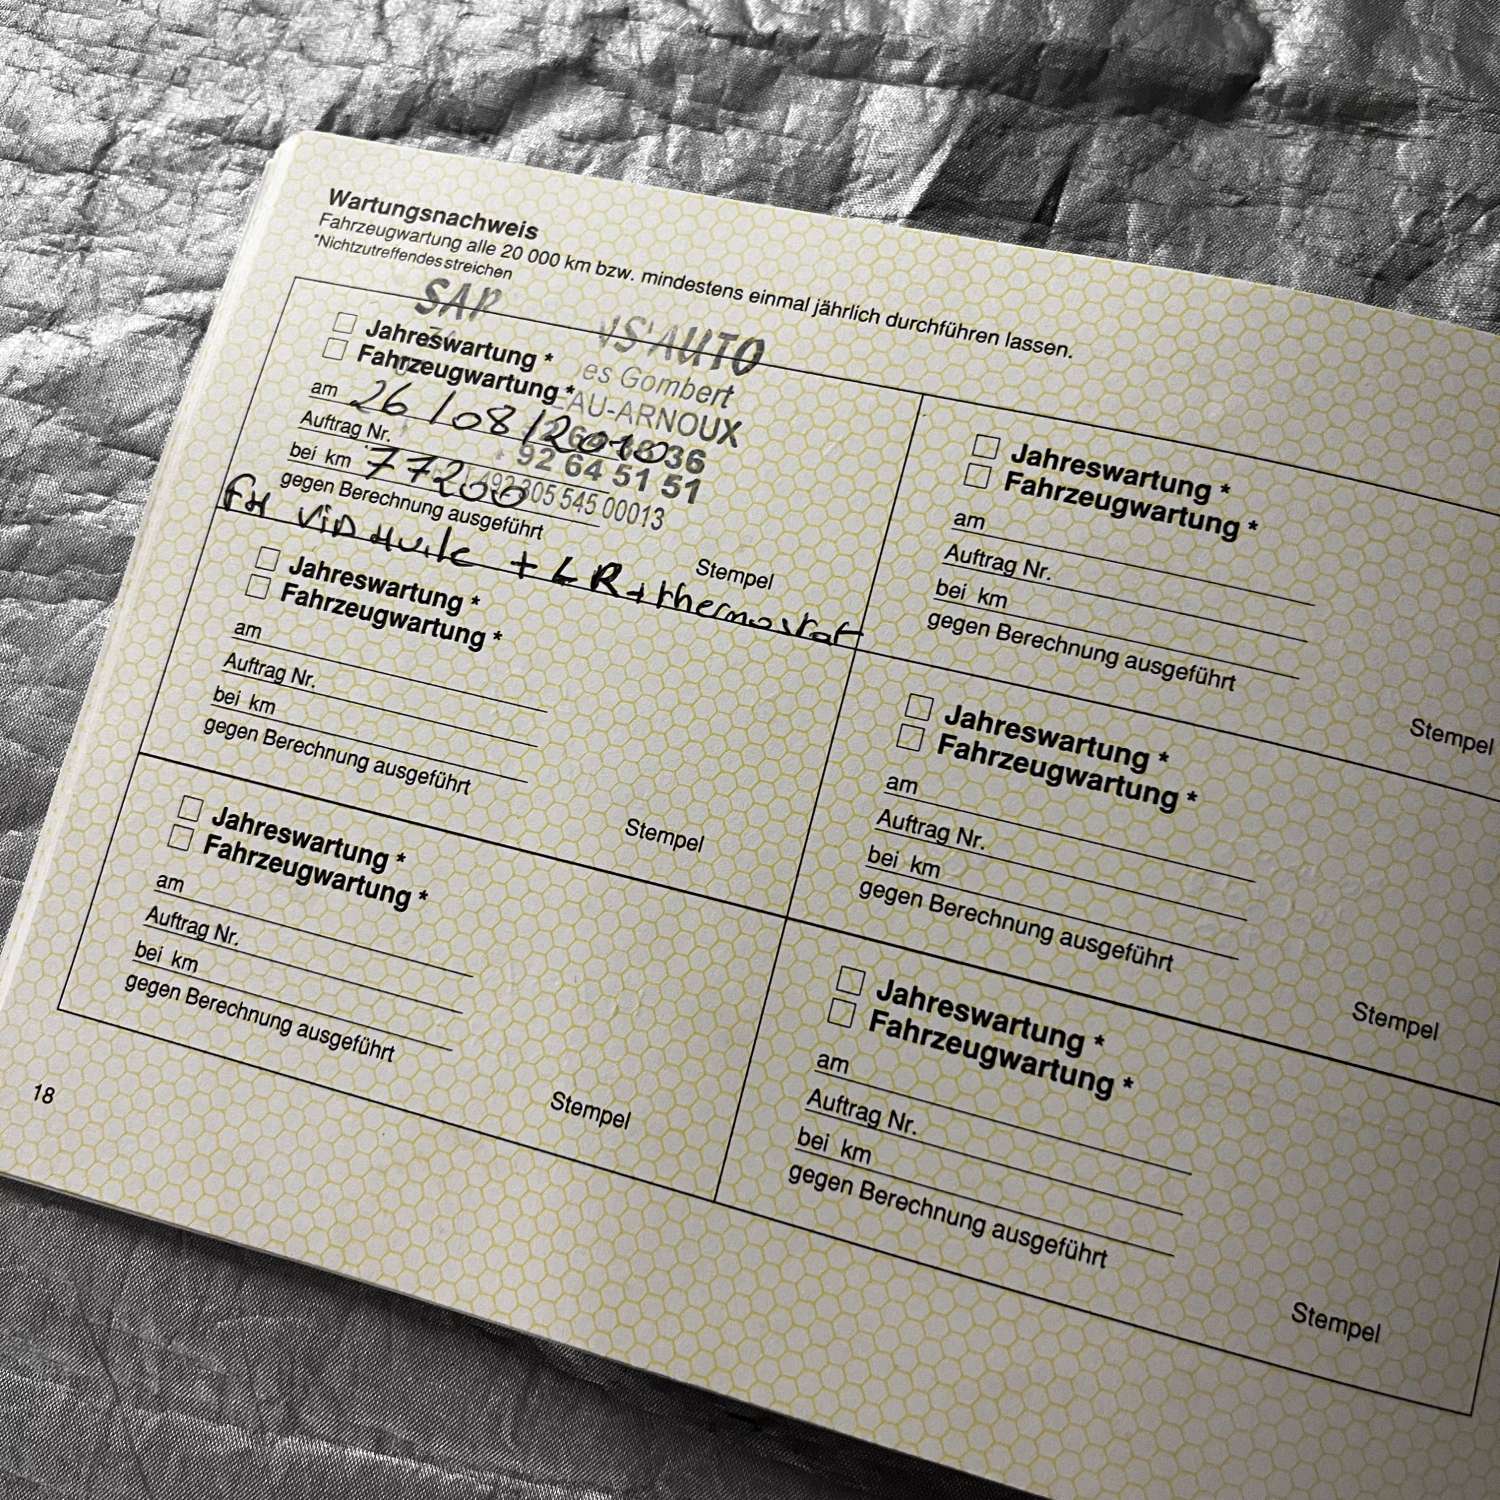 Wartungsnachweis
Fahrzeugwartung alle 20 000 km bzw. mindestens einmal jährlich durchführen lassen.
*Nichtzutreffendes streichen
VS'AUTO
es Gombert
EAU-ARNOUX
36
92 64 51 51
492 305 545 00013
Jahreswartung *
Fahrzeugwartung *
am 26/08/2010
Auftrag Nr.
bei km 77200
gegen Berechnung ausgeführt
Stempel
Huile + LR + thermostat
Jahreswartung *
Fahrzeugwartung *
am
Auftrag Nr.
bei km
gegen Berechnung ausgeführt
Stempel
Jahreswartung *
Fahrzeugwartung *
am
Auftrag Nr.
bei km
gegen Berechnung ausgeführt
Stempel
Jahreswartung *
Fahrzeugwartung *
am
Auftrag Nr.
bei km
gegen Berechnung ausgeführt
Stempel
Jahreswartung *
Fahrzeugwartung *
am
Auftrag Nr.
bei km
gegen Berechnung ausgeführt
Stempel
Jahreswartung *
Fahrzeugwartung *
am
Auftrag Nr.
bei km
gegen Berechnung ausgeführt
Stempel
18